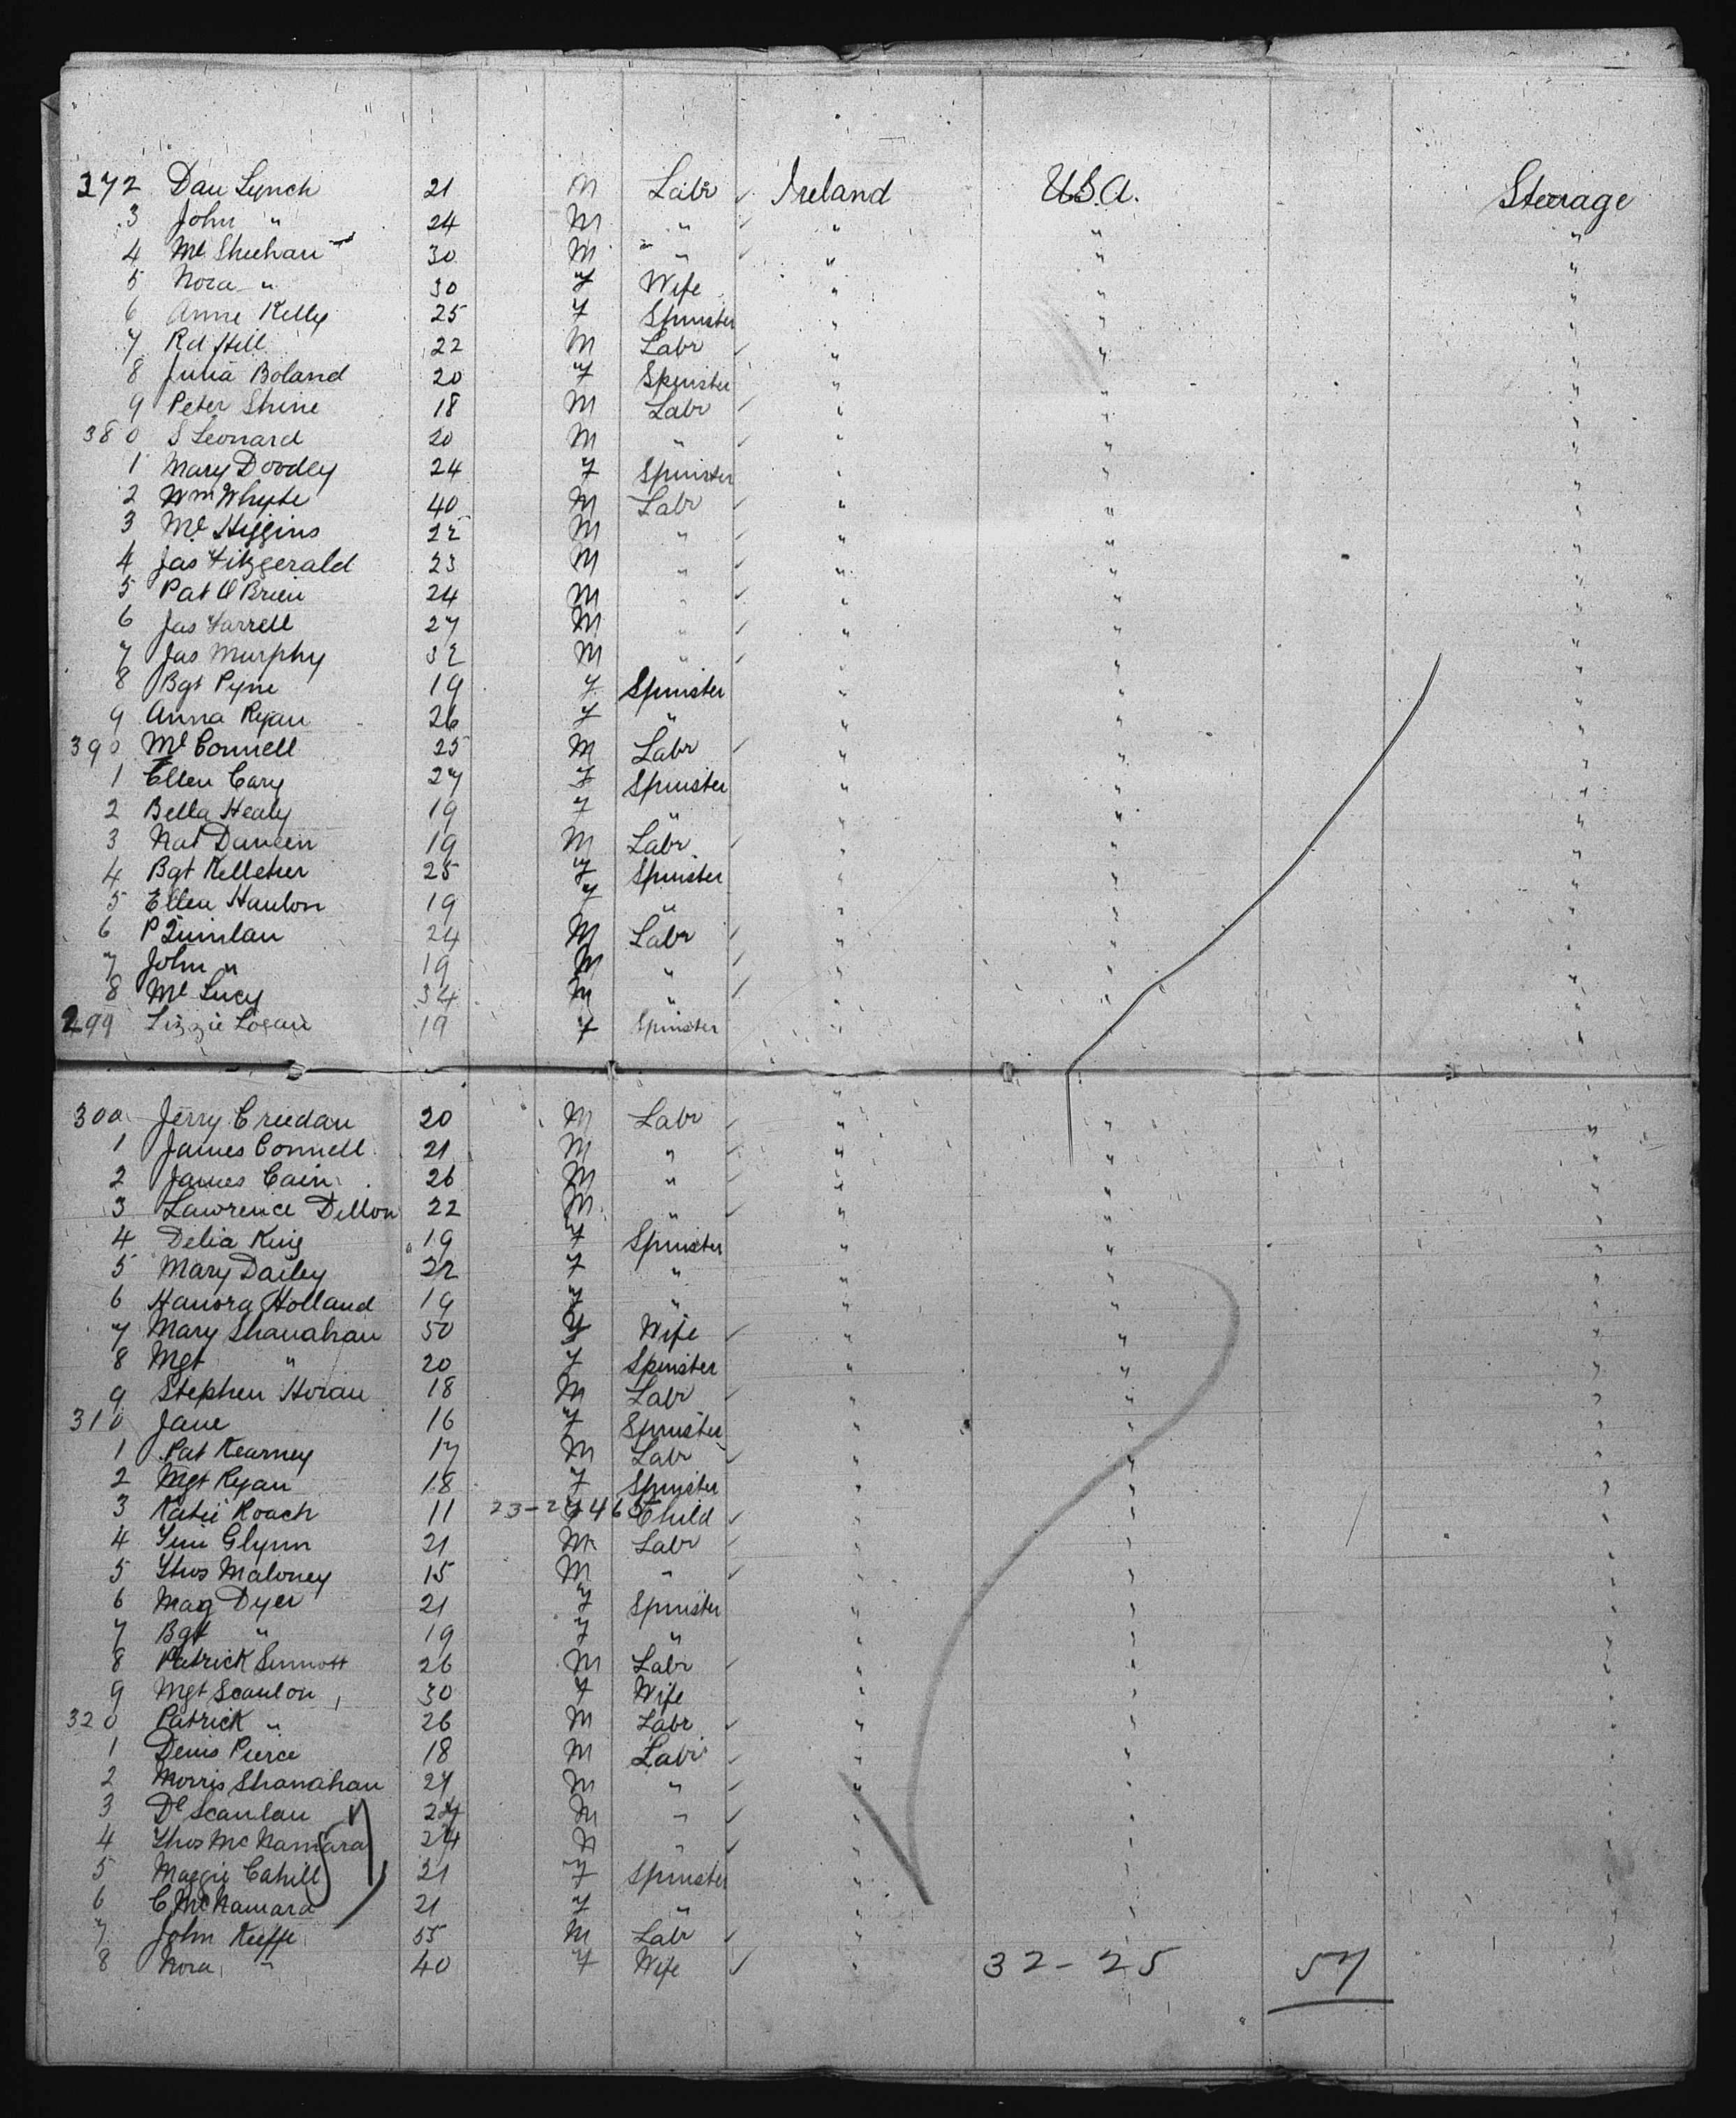 372 Dan Lynch 21 M Labr ✓ Ireland U.S.A. Steerage
3 John " 24 M " ✓ " " "
4 Ml Sheehan 30 M " ✓ " " "
5 Nora " 30 F Wife " " "
6 Anne Kelly 25 F Spinster " " "
7 Rd Hill 22 M Labr ✓ " " "
8 Julia Boland 20 F Spinster " " "
9 Peter Shine 18 M Labr ✓ " " "
380 S Leonard 20 M " ✓ " " "
1 Mary Doodey 24 F Spinster " " "
2 Wm Whyte 40 M Labr ✓ " " "
3 Ml Higgins 22 M " ✓ " " "
4 Jas Fitzgerald 23 M " ✓ " " "
5 Pat O Brien 24 M " ✓ " " "
6 Jas Farrell 27 M " ✓ " " "
7 Jas Murphy 32 M " ✓ " " "
8 Bgt Pyne 19 F Spinster " " "
9 Anna Ryan 26 F " " " "
390 Ml Connell 25 M Labr ✓ " " "
1 Ellen Cary 27 F Spinster " " "
2 Bella Healy 19 F " " " "
3 Nat 19 M Labr ✓ " " "
4 Bgt Kelleher 25 F Spinster " " "
5 Ellen Hanlon 19 F " " " "
6 P Quinlan 24 M Labr ✓ " " "
7 John " 19 M " ✓ " " "
8 Ml Lucy 34 M " ✓ " " "
299 Lizzie Logan 19 F Spinster " " "
300 Jerry Creedan 20 M Labr ✓ " " "
1 James Connell 21 M " ✓ " " "
2 James Cain 26 M " ✓ " " "
3 Lawrence Dillon 22 M " ✓ " " "
4 Delia King 19 F Spinster " " "
5 Mary Dailey 22 F " " " "
6 Hanora Holland 19 F " " " "
7 Mary Shanahan 50 F Wife ✓ " " "
8 Mgt " 20 F Spinster " " "
9 Stephen Horan 18 M Labr ✓ " " "
310 Jane 16 F Spinster " " "
1 Pat Kearney 17 M Labr ✓ " " "
2 Mgt Ryan 18 F Spinster " " "
3 Katie Roach 11 F Child ✓ " " "
4 Tim Glynn 21 M Labr ✓ " " "
5 Thos Maloney 15 M " ✓ " " "
6 Mag Dyer 21 F Spinster " " "
7 Bgt " 19 F " " " "
8 Patrick Sinnott 26 M Labr ✓ " " "
9 Mgt Scanlon 30 F Wife " " "
320 Patrick " 26 M Labr ✓ " " "
1 Denis Pierce 18 M Labr ✓ " " "
2 Morris Shanahan 27 M " ✓ " " "
3 Dl Scanlan 24 M " ✓ " " "
4 Thos McNamara 24 M " ✓ " " "
5 Maggie Cahill 21 F Spinster " " "
6 C McNamara 21 F " " " "
7 John Keeffe 55 M Labr ✓ " "
8 Nora " 40 F Wife ✓ " 32-25 57 "
57